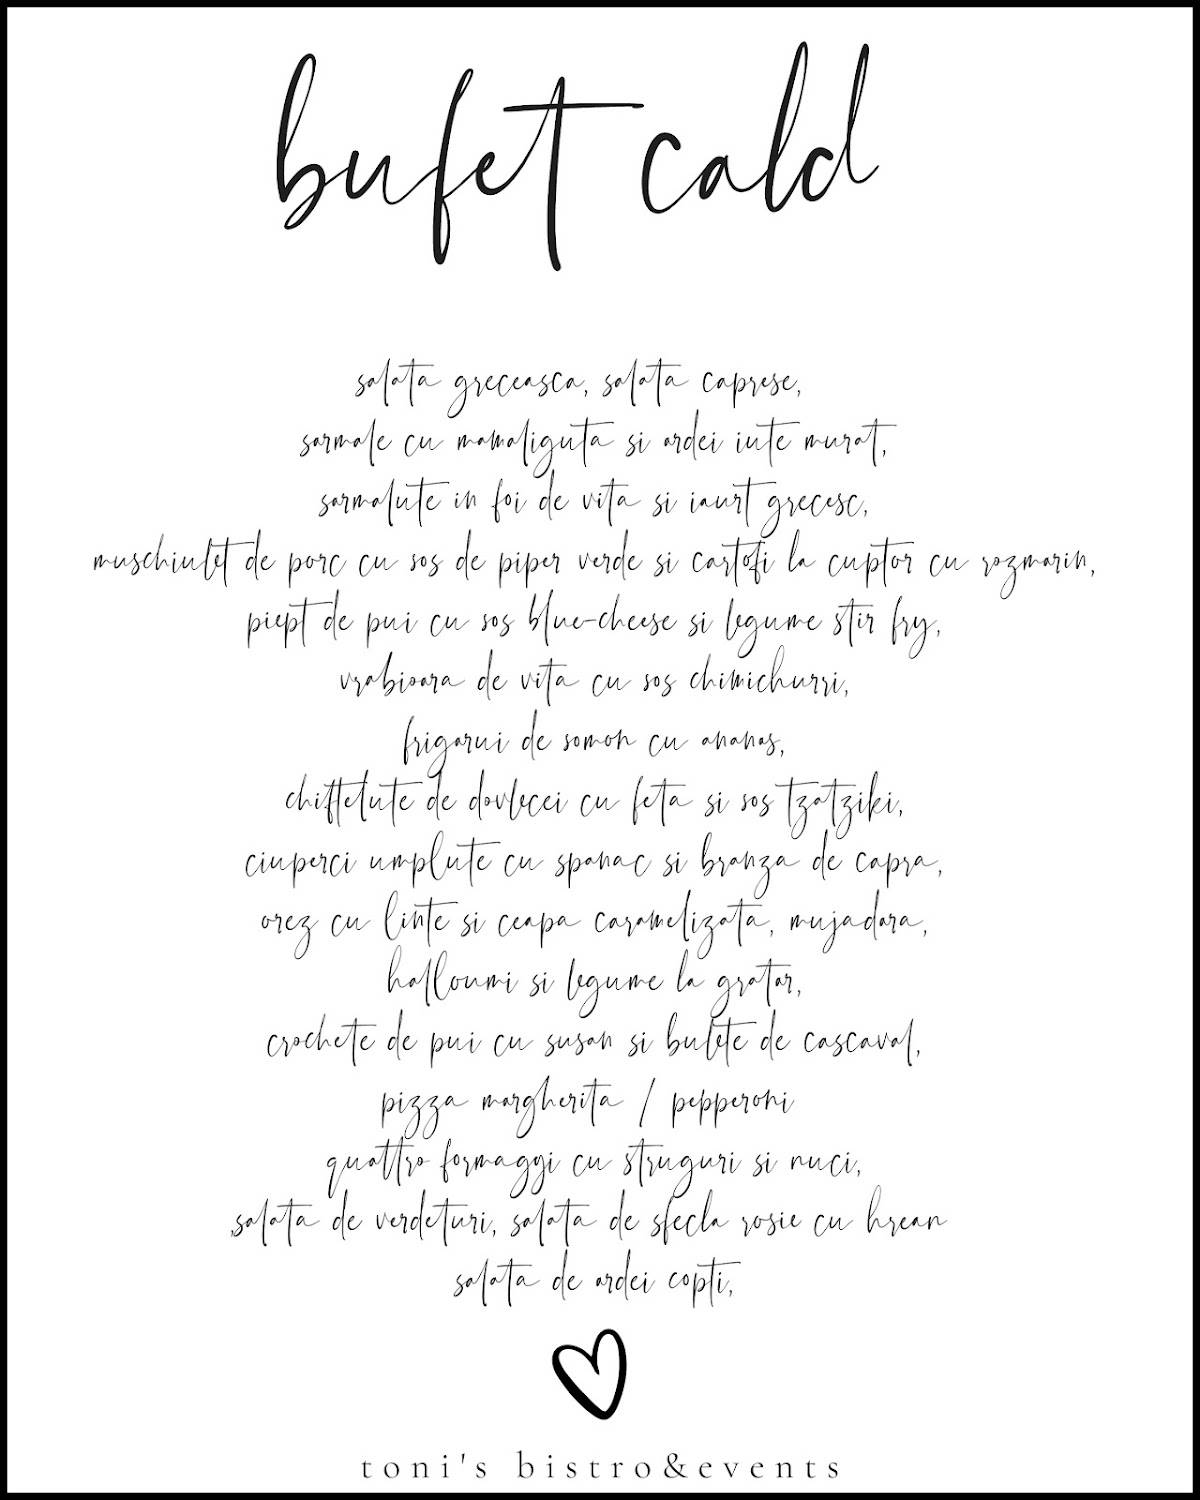 bufet cald
salata greceasca, salata caprese,
sarmale cu mamaliguta si ardei iute murat,
sarmalute in foi de vita si iaurt grecesc,
muschiulet de porc cu sos de piper verde si cartofi la cuptor cu rozmarin,
piept de pui cu sos blue-cheese si legume stir fry,
vrabioara de vita cu sos chimichurri,
frigarui de somon cu ananas,
chiftelute de dovlecei cu feta si sos tzatziki,
ciuperci umplute cu spanac si branza de capra,
orez cu linte si ceapa caramelizata, mujadara,
halloumi si legume la gratar,
crochete de pui cu susan si bulete de cascaval,
pizza margherita / pepperoni
quattro formaggi cu struguri si nuci,
,salata de verdeturi, salata de sfecla rosie cu hrean
salata de ardei copti,
toni's bistro&events